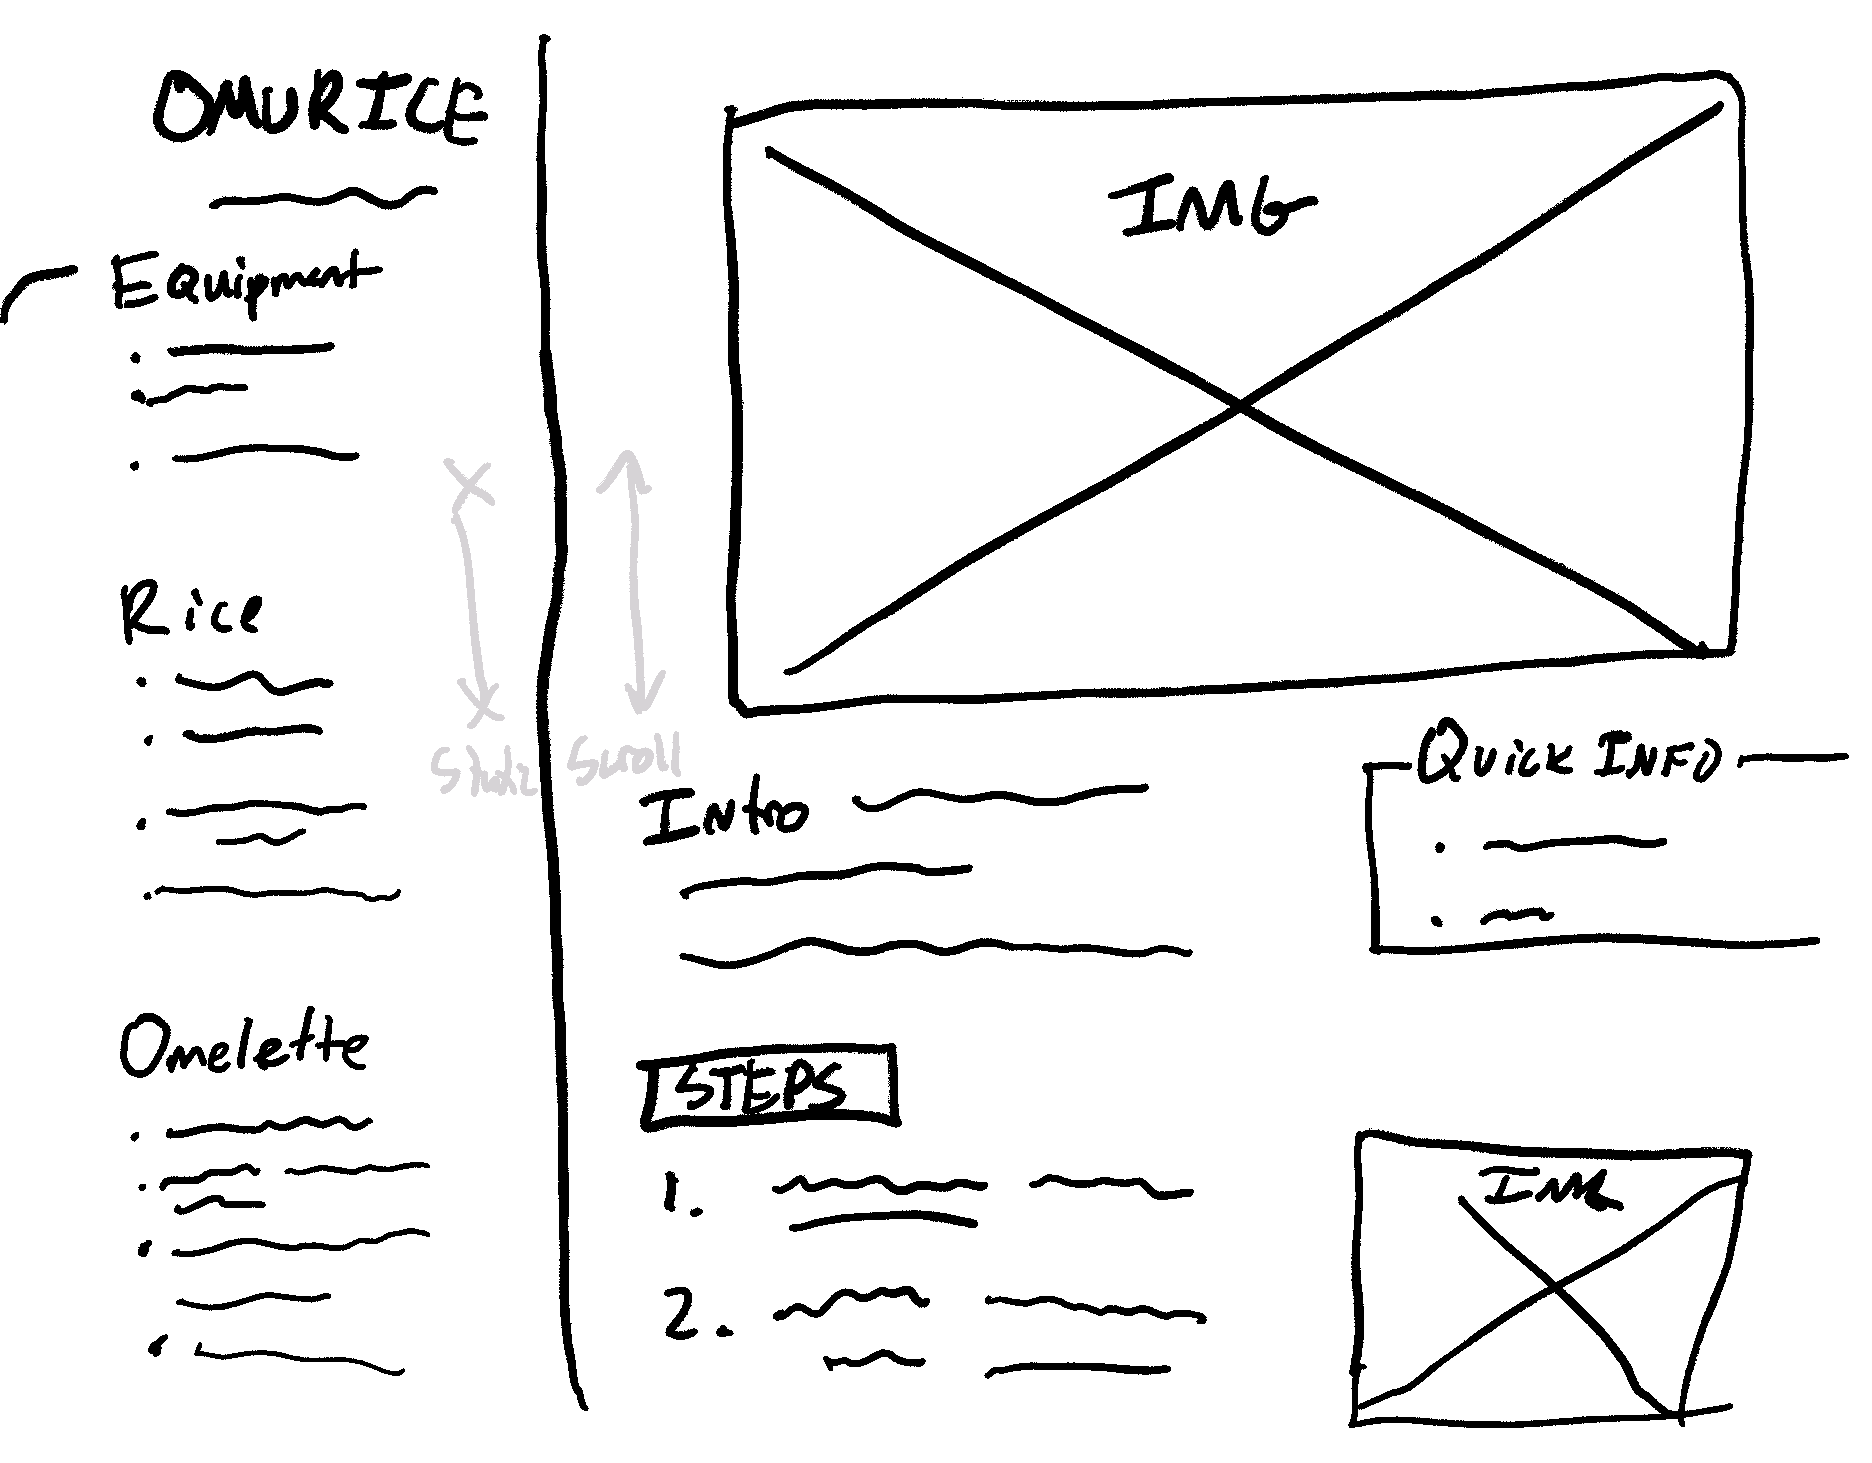 OMURICE
Equipment
Rice
Omelette
Static
Scroll
IMG
Intro
QUICK INFO
STEPS
1.
2.
IMG